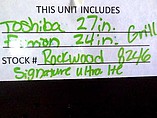 THIS UNIT INCLUDES
Toshiba 27in.
Furrion 24in. Grill
STOCK # Rockwood 8246
Signature ultra lte